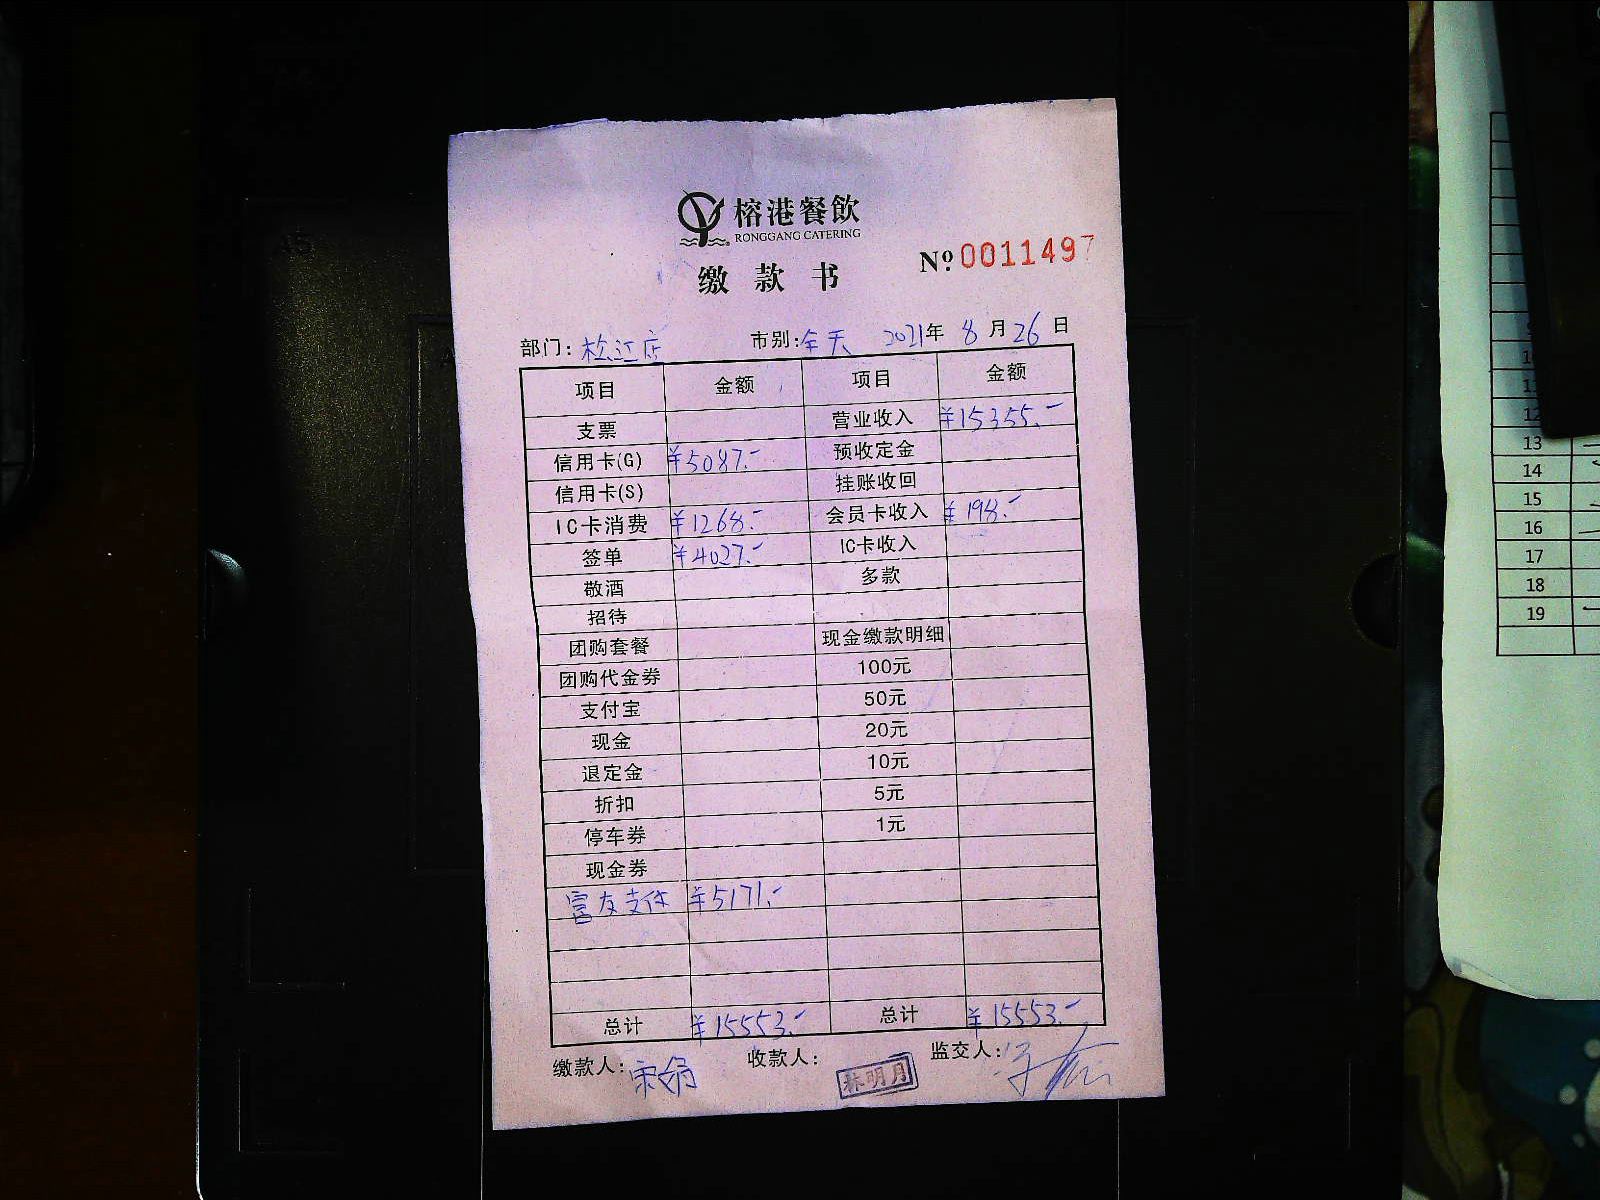 榕港餐飲
RONGGANG CATERING
缴款书 №0011497
部门：松江店 市别：全天 2021年8月26日
项目 金额 项目 金额
支票 营业收入 ¥15355.-
信用卡(G) ¥5087.- 预收定金
信用卡(S) 挂账收回
IC卡消费 ¥1268.- 会员卡收入 ¥198.-
签单 ¥4027.- IC卡收入
敬酒 多款
招待
团购套餐 现金缴款明细
团购代金券 100元
支付宝 50元
现金 20元
退定金 10元
折扣 5元
停车券 1元
现金券
富友支付 ¥5171.-
总计 ¥15553.- 总计 ¥15553.-
缴款人：宋娟 收款人：林明月 监交人：
A5
13
14
15
16
17
18
19